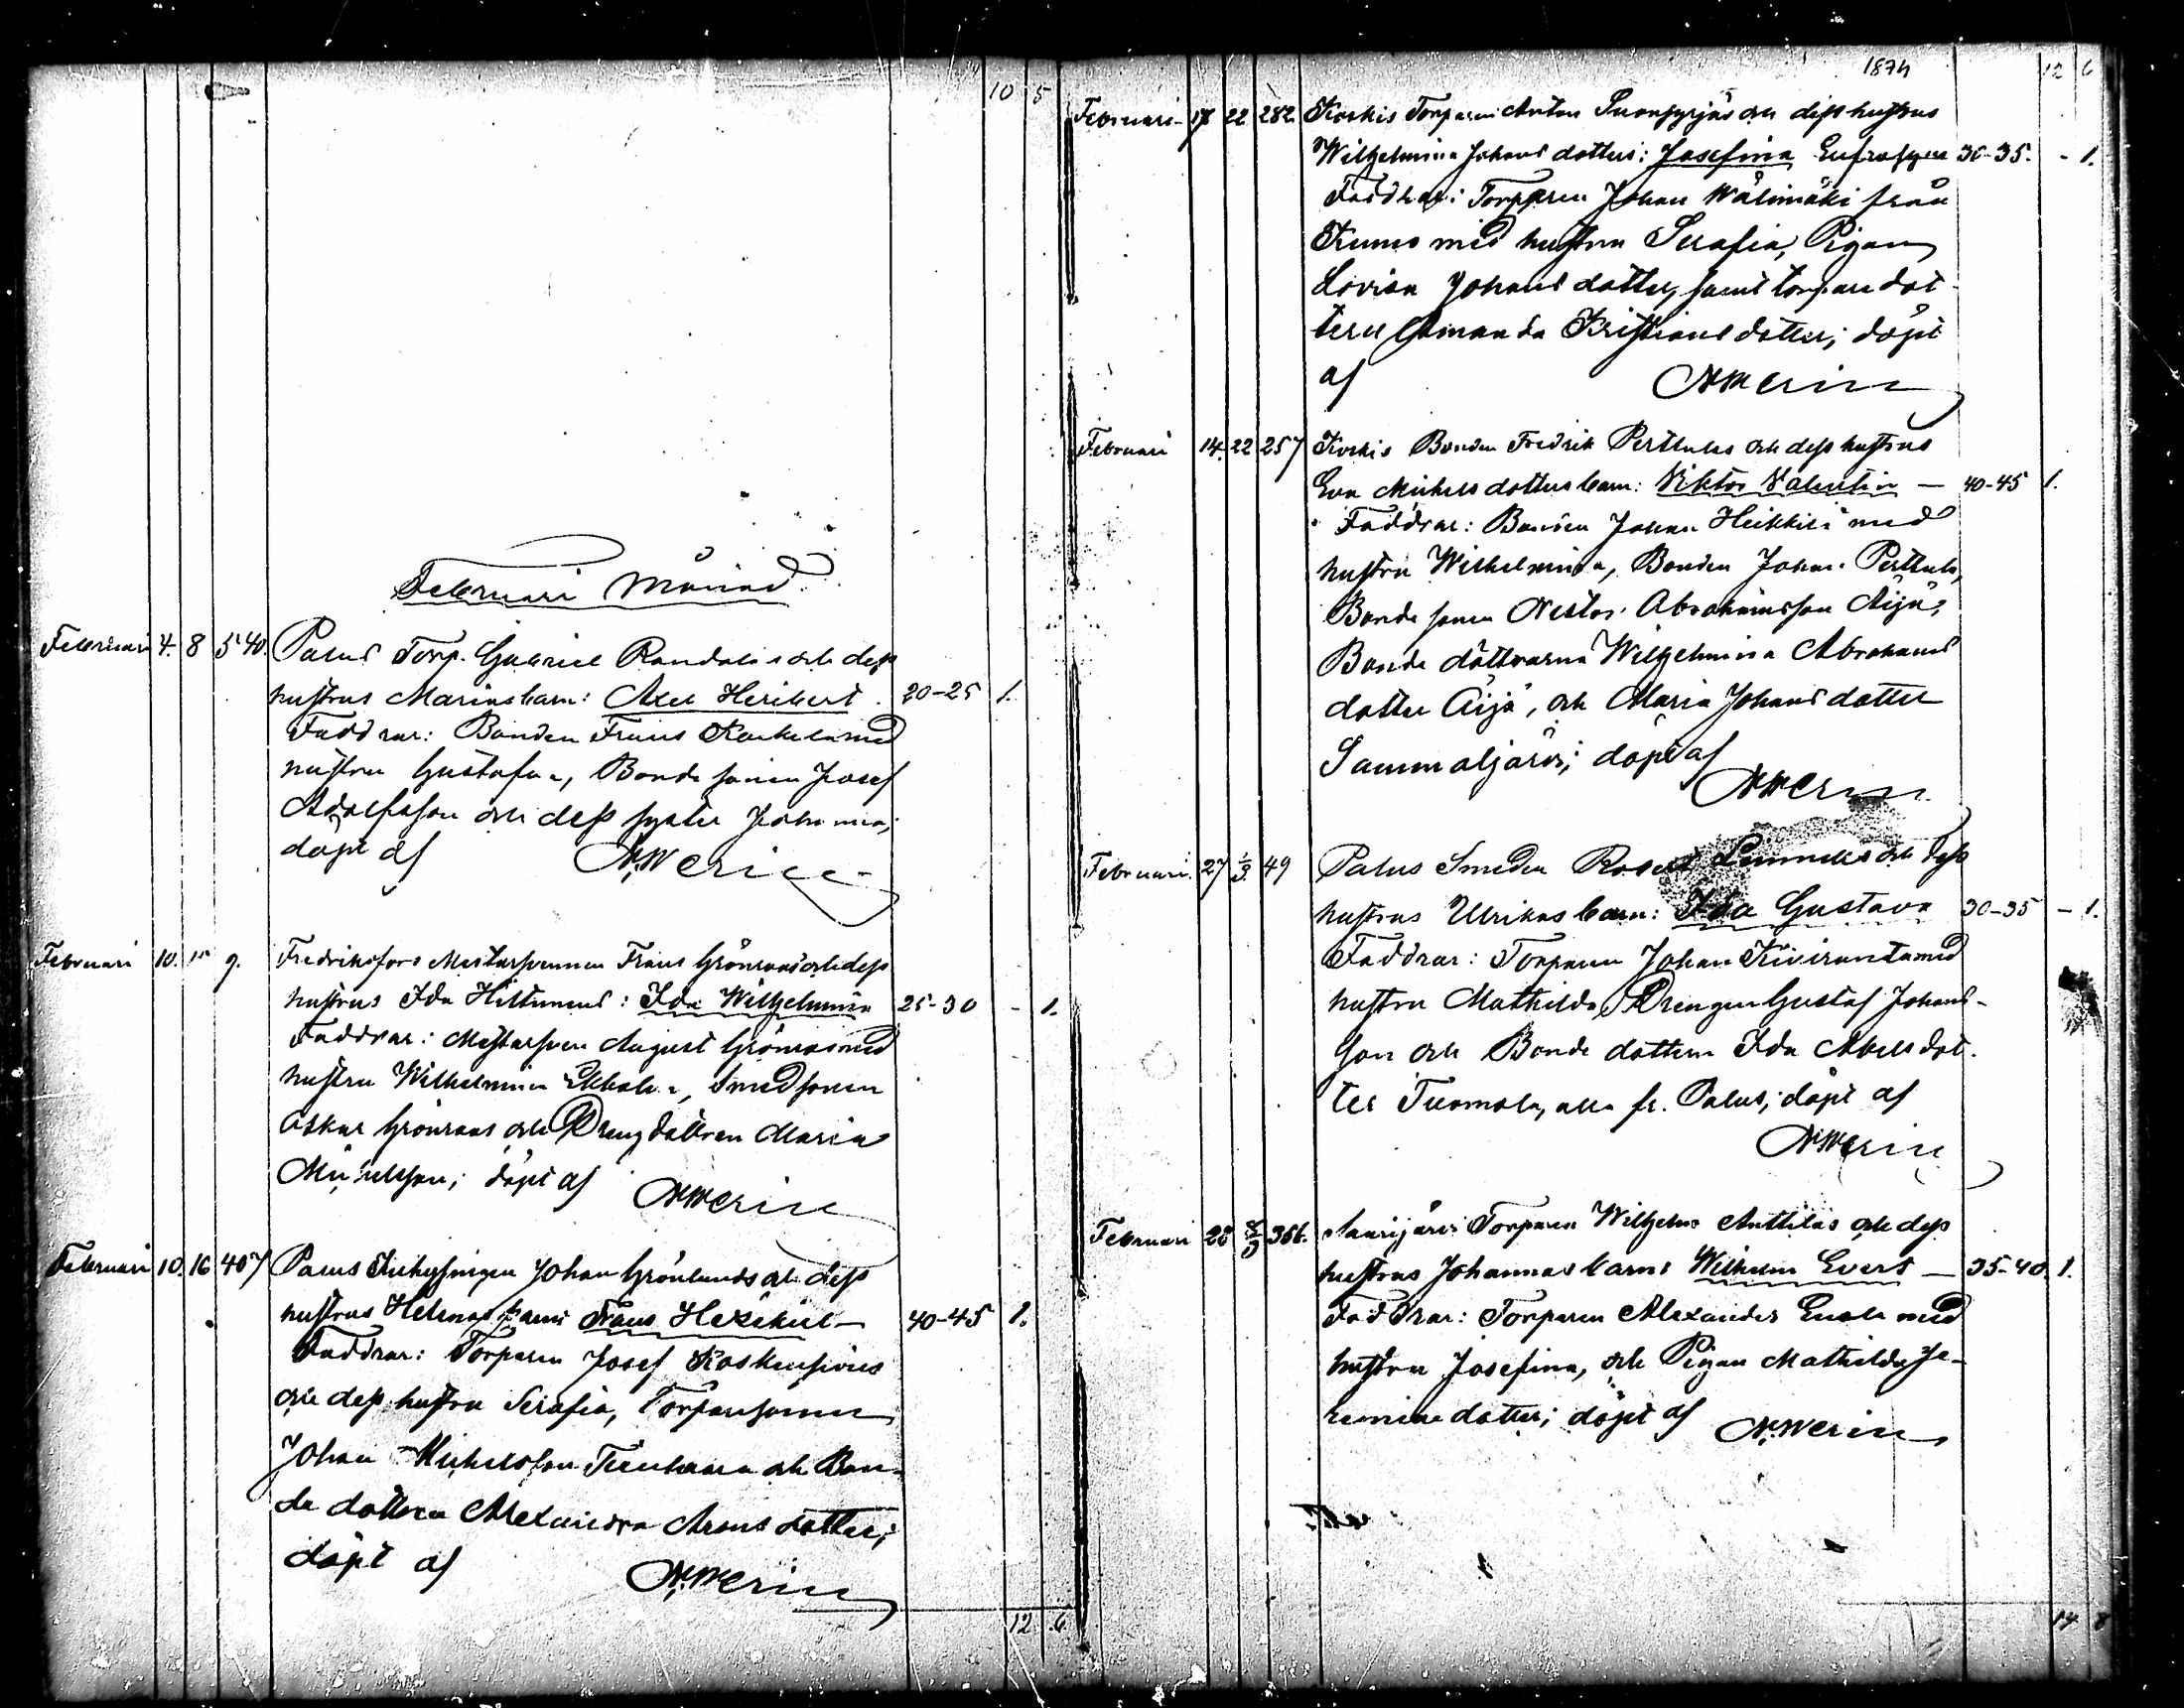 10 5
Februari Månad.
Februari 4. 8 540. Palus Torp. Gabriel Randalas och dess
hustrus Marias barn: Axel Heribert. 20-25 1.
Faddrar: Bonden Frans med
hustru Gustafva, Bonde sonen Josef
Adolfsson och dess syster Johanna;
döpt af NWerin
Februari 10. 15 9. Fredriksfors Mästarsvennen Frans Grönroos och dess
hustrus Ida Hiltunens: Ida Wilhelmina 25-30 - 1.
Faddrar: Mästarsven August Grönroos med
hustru Wilhelmina, Smedsonen
Oskar Grönroos och Drengdottren Maria
Michelsson; döpt af NWerin
Februari 10. 16 407 Palus Johan Grönlunds och dess
hustrus Helenas barn: Frans Hezekiel - 40-45 1.
Faddrar: Torparen Josef
och dess hustru Serafia, Torparesonen
Johan Michelsson och Bon-
de dottren Alexandra Arons dotter;
döpt af NWerin
12 6
1874 12 6
Februari 17 22 282 Koskis Torparen Anton Suonpyrjäs och dess hustrus
Wilhelmina Johans dotters: Josefina Eufrosyne 30-35. - 1.
Faddrar: Torparen Johan Wälimäki från
Kumo med hustru Serafia, Pigan
Lovisa Johans dotter, samt torpare dot-
tern Amanda Kristians dotter; döpt
af NWerin
Februari 14. 22 257 Koskis Bonden Fredrik Perttulas och dess hustrus
Eva Michels dotters barn: Viktor Valentin - 40-45 1.
Faddrar: Bonden Johan Heikkilä med
hustru Wilhelmina, Bonden Johan Perttula,
Bonde sonen Nestor Abrahamsson Äijä,
Bonde döttrarna Wilhelmina Abrahams
dotter Äijä, och Maria Johans dotter
Sammaljärvi; döpt af
NWerin
Februari. 27 1/3 49 Palus Smeden och dess
hustrus Ulrikas barn: Ida Gustava 30-35 - 1.
Faddrar: Torparen Johan Kiviranta med
hustru Mathilda, Drengen Gustaf Johans-
son och Bonde dottern Ida Abels dot-
ter Tuomola, alla fr. Palus; döpt af
NWerin
Februari 28 8/3 366. Saarijärvi Torparen Wilhelm Anttilas och dess
hustrus Johannas barn: Wilhelm Evert - 35-40. 1.
Faddrar: Torparen Alexander med
hustru Josefina, och Pigan Mathilda Je-
remias dotter; döpt af NWerin
14 8